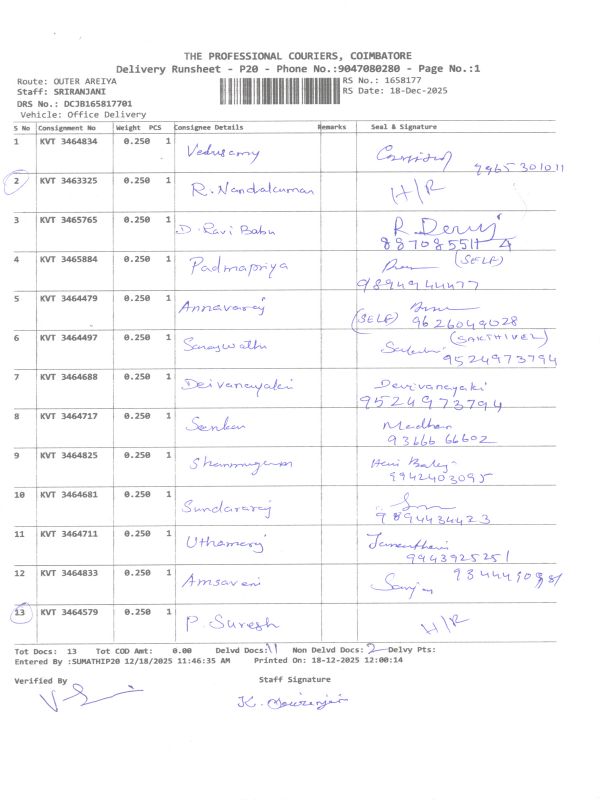 THE PROFESSIONAL COURIERS, COIMBATORE
Delivery Runsheet - P20 - Phone No.:9047080280 - Page No.:1
Route: OUTER AREIYA
RS No.: 1658177
Staff: SRIRANJANI
RS Date: 18-Dec-2025
DRS No.: DCJB165817701
Vehicle: Office Delivery
S No Consignment No Weight PCS Consignee Details Remarks Seal & Signature
1 KVT 3464834 0.250 1 Velusamy 9965301011
2 KVT 3463325 0.250 1 R. Nandakumar H/R
3 KVT 3465765 0.250 1 D. Ravi Babu R. Devi
8870855114
4 KVT 3465884 0.250 1 Padmapriya (SELF)
9894944477
5 KVT 3464479 0.250 1 Annavaraj
(SELF) 9626049028
6 KVT 3464497 0.250 1 Saraswathi (SAKTHIVEL)
9524973794
7 KVT 3464688 0.250 1 Deivanayaki Deivanayaki
9524973794
8 KVT 3464717 0.250 1 Senkar Madhan
93666 66602
9 KVT 3464825 0.250 1 Shanmugam Hari Balaji
9942403095
10 KVT 3464681 0.250 1 Sundararaj
9894434423
11 KVT 3464711 0.250 1 Uthamaraj
9943925251
12 KVT 3464833 0.250 1 Amsaveni
13 KVT 3464579 0.250 1 P. Suresh H/R
Tot Docs: 13 Tot COD Amt: 0.00 Delvd Docs: 11 Non Delvd Docs: 2 Delvy Pts:
Entered By :SUMATHIP20 12/18/2025 11:46:35 AM Printed On: 18-12-2025 12:00:14
Verified By Staff Signature